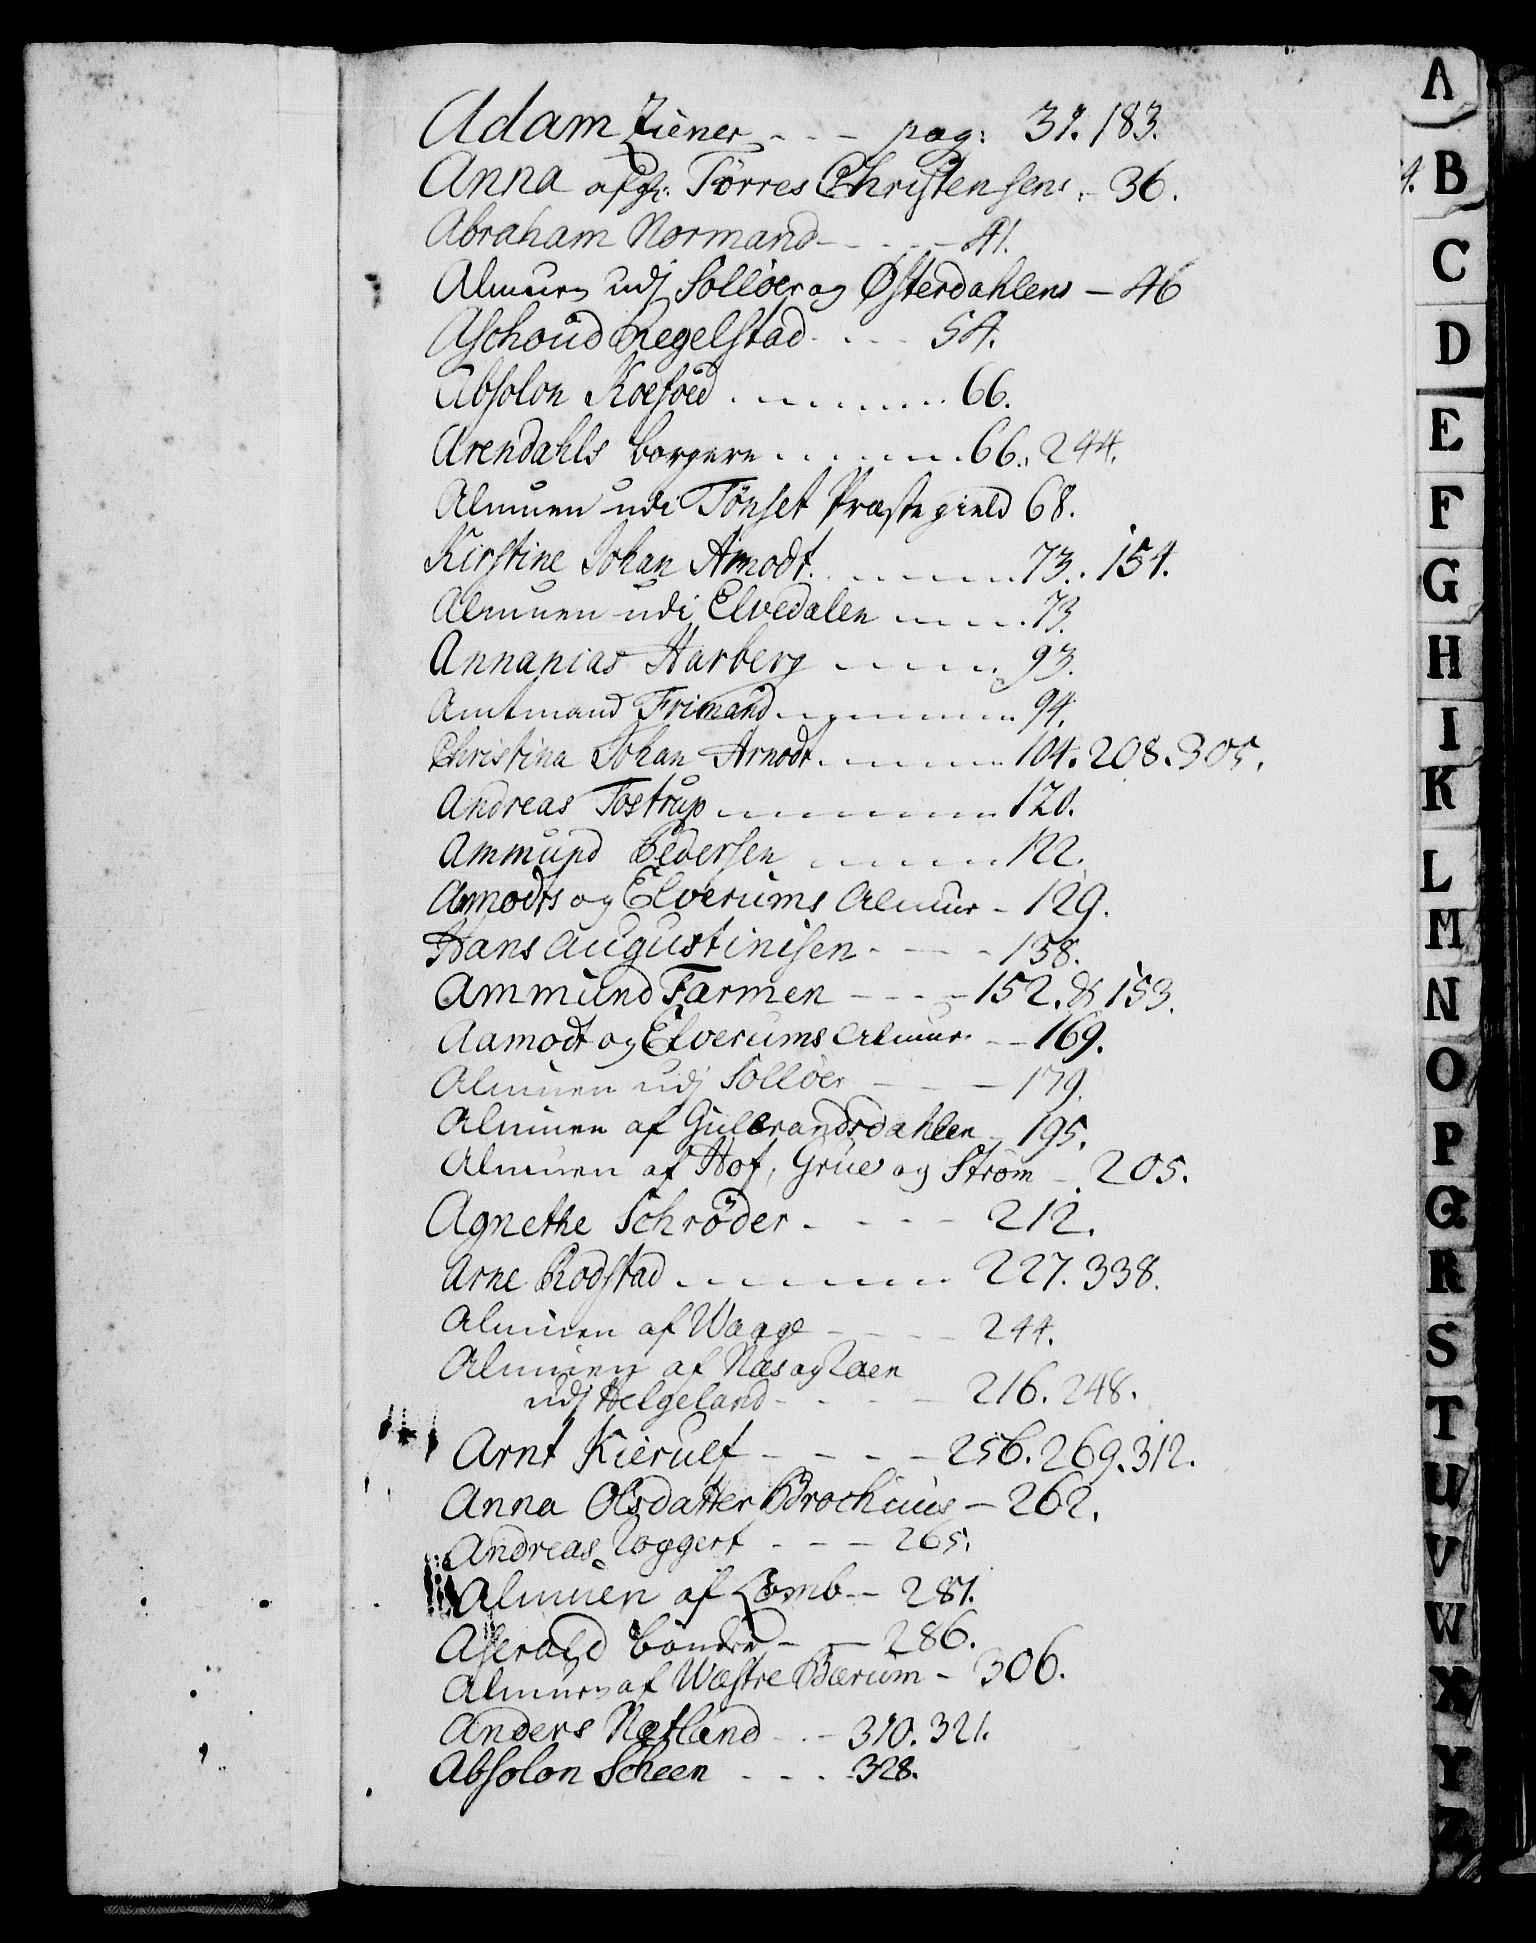 Adam Ziener - - - pag: 37. 183.
Anna afg: Tørres Christensens - 36.
Abraham Normand - - - - 41.
Almuen udj Solløer og Østerdahlens - 46
Aschoud Regelstad - - - 54.
Absolon Koefoed - - - - 66.
Arendahls borgere - - - - 66. 244.
Almuen udi Tønset Præstegield 68.
Kirstine Johan Arnodt - - - - 73. 154.
Almuen udi Elvedalen - - - - 73.
Annanias Harberg - - - - 93.
Amtmand Frimand - - - - 94.
Christina Johan Arnodt - - - - 104. 208. 305.
Andreas Tostrup - - - - 120.
Ammund Pedersen - - - - 122.
Amodts og Elverums Almue - 129.
Hans Augustinisen - - - 138.
Ammund Farmen - - - - 152. & 153.
Aamodt og Elverums Almue - - 169.
Almuen udj Solløer - - - 179.
Almuen af Gulbrandsdahlen - 195.
Almuen af Hof, Grue og Strøm - 205.
Agnethe Schrøder - - - - 212.
Arne Rodstad - - - - 227. 338.
Almuen af Waage - - - - 244.
Almuen af Næs og
udj Helgeland - - - - 216. 248.
Arnt Kierulf - - - - 256. 269. 312.
Anna Olsdatter Brochiuus - 262.
Andreas Roggert - - - 265.
Almuen af Lomb - - 281.
Aseral bønder - - 286.
Almuen af Wæstre Bærum - 306.
Anders Nætland - - 310. 321.
Absolon Scheen - - - 328.
A
B
C
D
E
F
G
H
I
K
L
M
N
O
P
Q
R
S
T
U
V
W
X
Y
Z